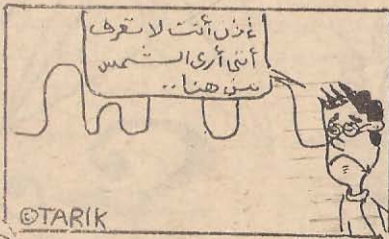 إذن أنت لا تعرف
أنني أرى الشمس
من هنا..
©TARIK